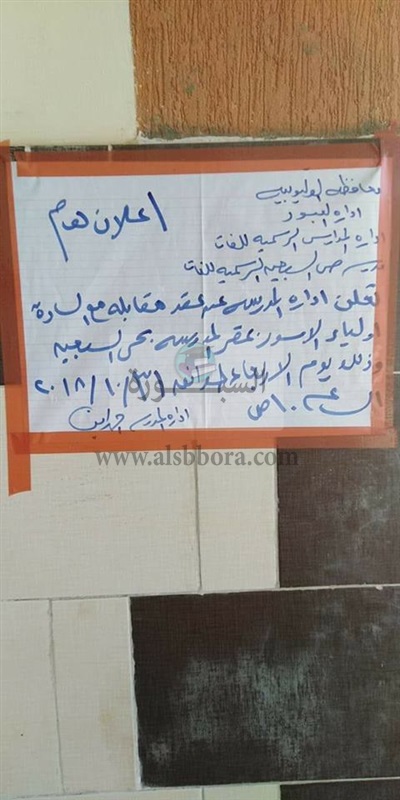 محافظة القليوبية
ادارة العبور
اعلان هام
ادارة المدارس الرسمية للغات
مدرسة حى السبعية الرسمية للغات
تعلن ادارة المدرسة عن عقد مقابلة مع السادة
اولياء الامور بمقر المدرسة بحى السبعية
وذلك يوم الاربعاء الموافق ٣١/١٠/٢٠١٨
الساعة ١٠ ص
ادارة المدرسة
السبورة
www.alsbbora.com